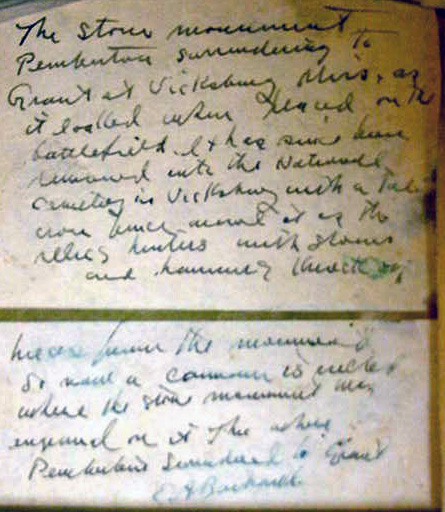 The Stone monument
Pemberton surrendering to
Grant at Vicksburg Miss, as
it looked when placed on the
battlefield. It has since been
removed into the National
Cemetery in Vicksburg with a
iron fence around it as the
relics hunters with stones
and hammers knock off
pieces from the monument
So now a cannon is
where the stone monument was
engraved on it The where
Pemberton Surrendered to Grant